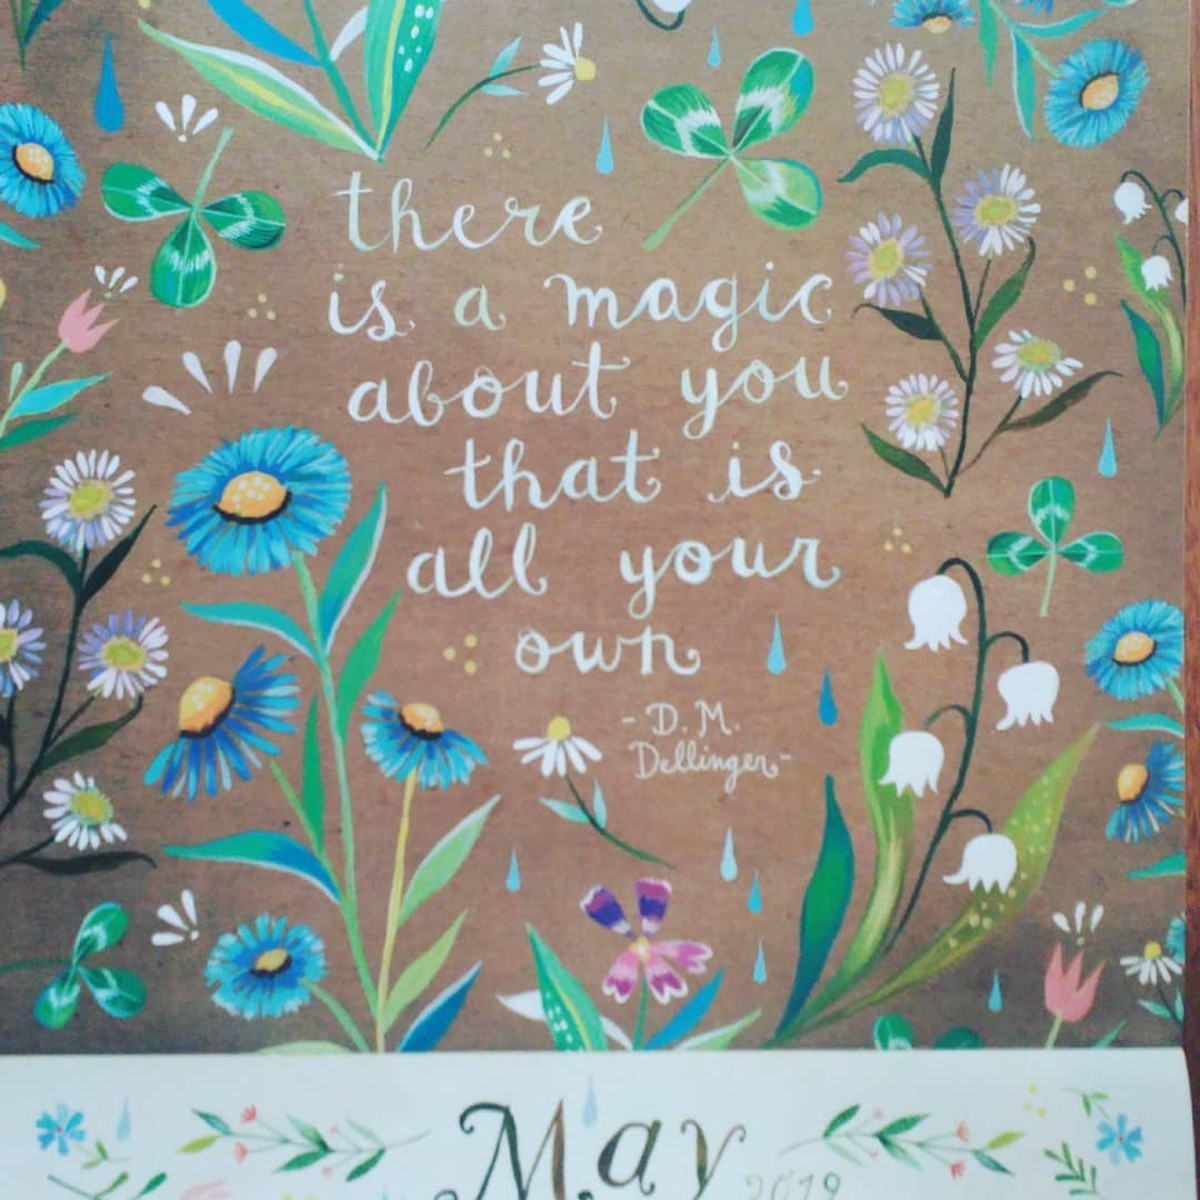 there
is a magic
about you
that is
all your
own
- D. M.
Dellinger -
May
2019